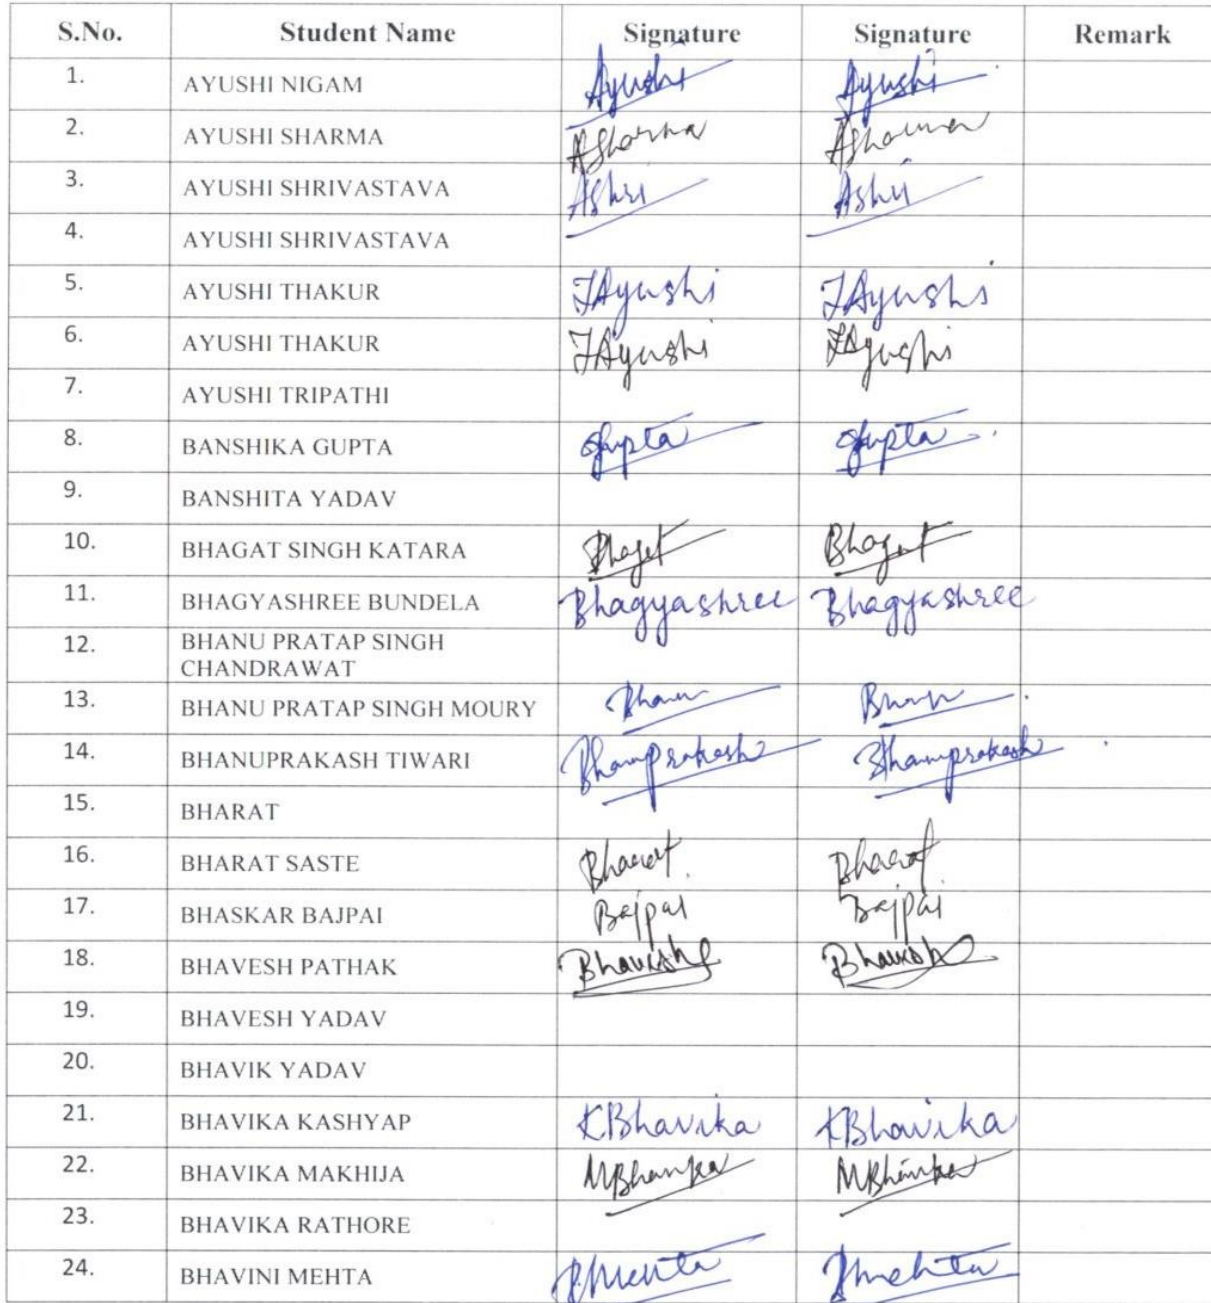 S.No. Student Name Signature Signature Remark
1. AYUSHI NIGAM Ayushi Ayushi
2. AYUSHI SHARMA ASharma ASharma
3. AYUSHI SHRIVASTAVA Ashri Ashri
4. AYUSHI SHRIVASTAVA
5. AYUSHI THAKUR TAyushi TAyushi
6. AYUSHI THAKUR TAyushi TAyushi
7. AYUSHI TRIPATHI
8. BANSHIKA GUPTA Gupta Gupta
9. BANSHITA YADAV
10. BHAGAT SINGH KATARA Bhagat Bhagat
11. BHAGYASHREE BUNDELA Bhagyashree Bhagyashree
12. BHANU PRATAP SINGH
CHANDRAWAT
13. BHANU PRATAP SINGH MOURY Bhanu Bhanu
14. BHANUPRAKASH TIWARI Bhanuprakash Bhanuprakash
15. BHARAT
16. BHARAT SASTE Bharat Bharat
17. BHASKAR BAJPAI Bajpai Bajpai
18. BHAVESH PATHAK Bhavesh Bhavesh
19. BHAVESH YADAV
20. BHAVIK YADAV
21. BHAVIKA KASHYAP KBhavika KBhavika
22. BHAVIKA MAKHIJA MBhavika MBhavika
23. BHAVIKA RATHORE
24. BHAVINI MEHTA BMehta Bmehta